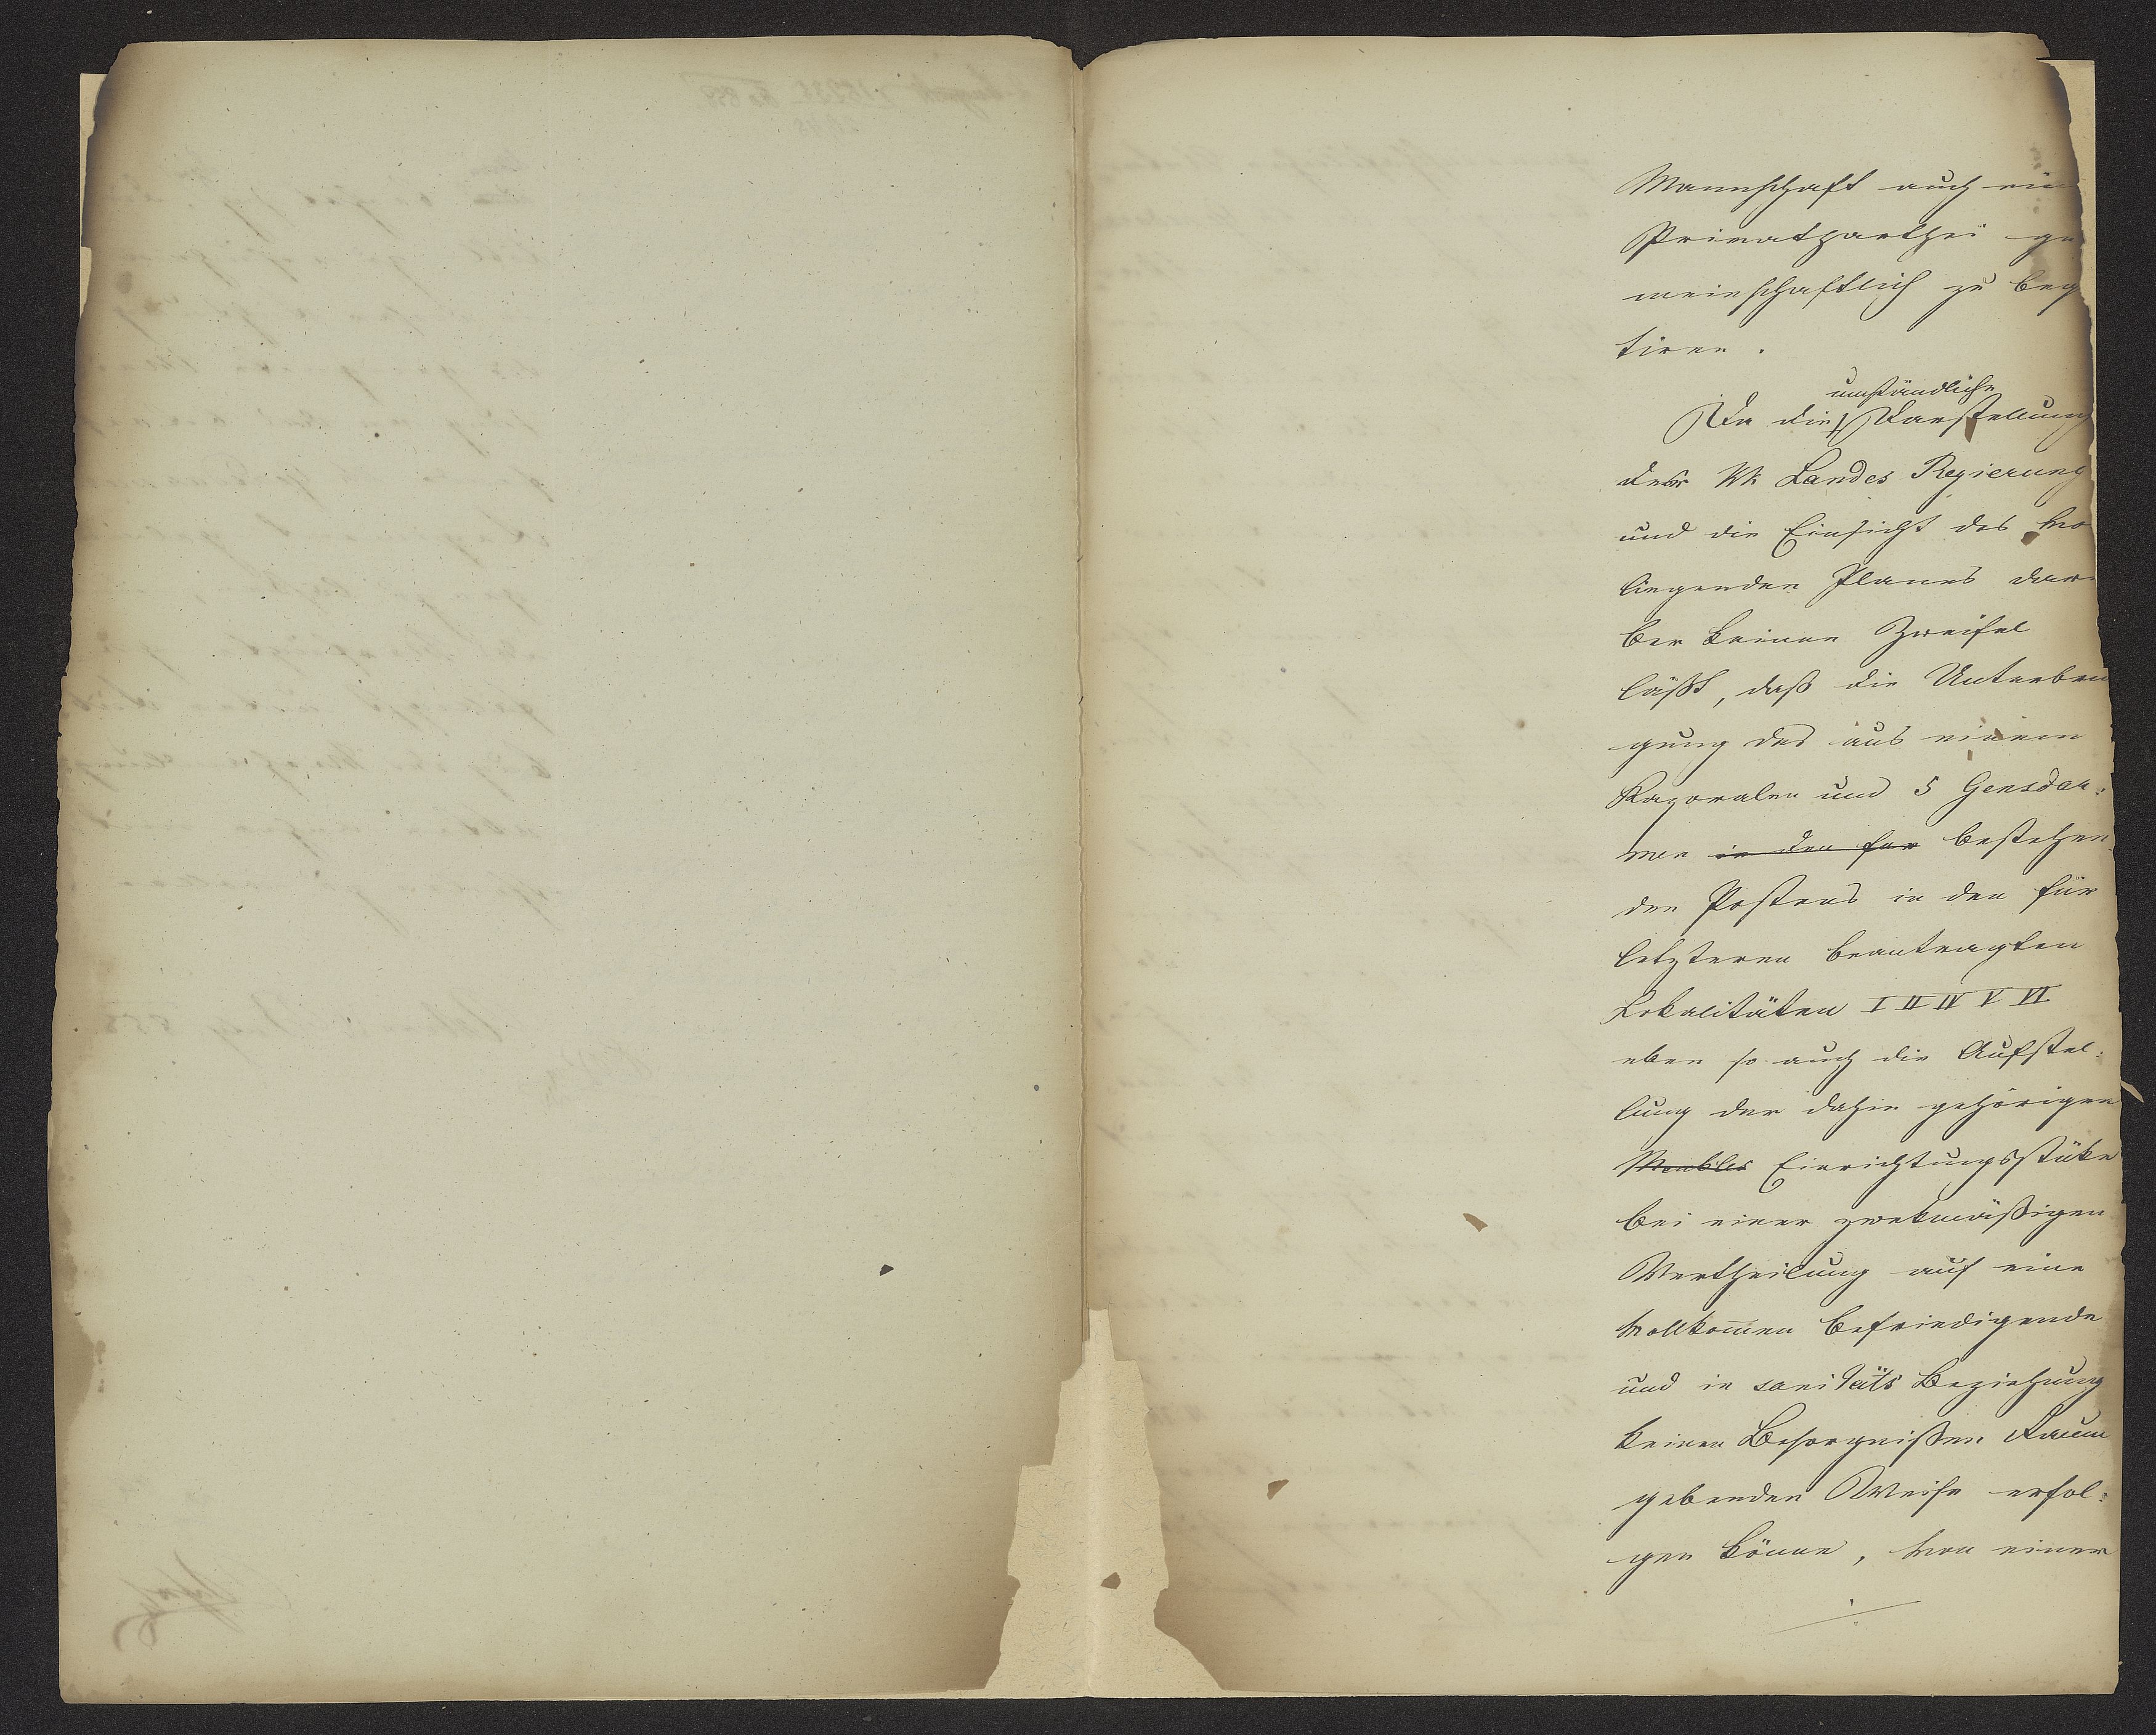 Mannschaft auch ein
Privatparthei ge
meinschaftlich zu beq
tiren.
umständliche
Da die Darstellung
der kk Landes Regierung
und die Einsicht des vo
liegenden Planes dar
ber keinen Zweifel
läßt, daß die Unterbrin
gung des aus einem
Kaporalen und 5 Gensdar:
men in den für bestehen
den Postens in den für
letzteren beantragten
Lokalitäten I II IV V VI
eben so auch die Aufstel:
lung der dahin gehörigen
Meubles Einrichtungsstüke
bei einer zwekmäßigen
Vertheilung auf eine
vollkom̅en befriedigende
und in sanitäts Beziehung
keinen Besorgnißen Raum
gebenden Weise erfol:
gen könne, von einer